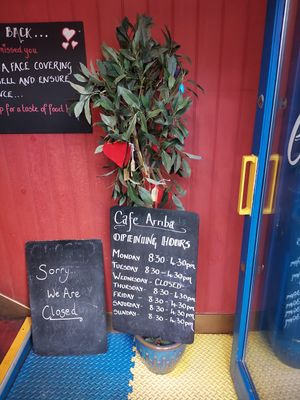 BACK...
missed you
A FACE COVERING
ELL AND ENSURE
NCE...
for a taste of food
Cafe Arriba
OPENING HOURS
MONDAY 8.30-4.30pm
TUESDAY 8.30-4.30pm
WEDNESDAY-CLOSED
THURSDAY- 8.30-4.30pm
FRIDAY- 8.30-4.30pm
SATURDAY- 8.30-4.30pm
SUNDAY- 8.30-4.30pm
Sorry...
We Are
Closed